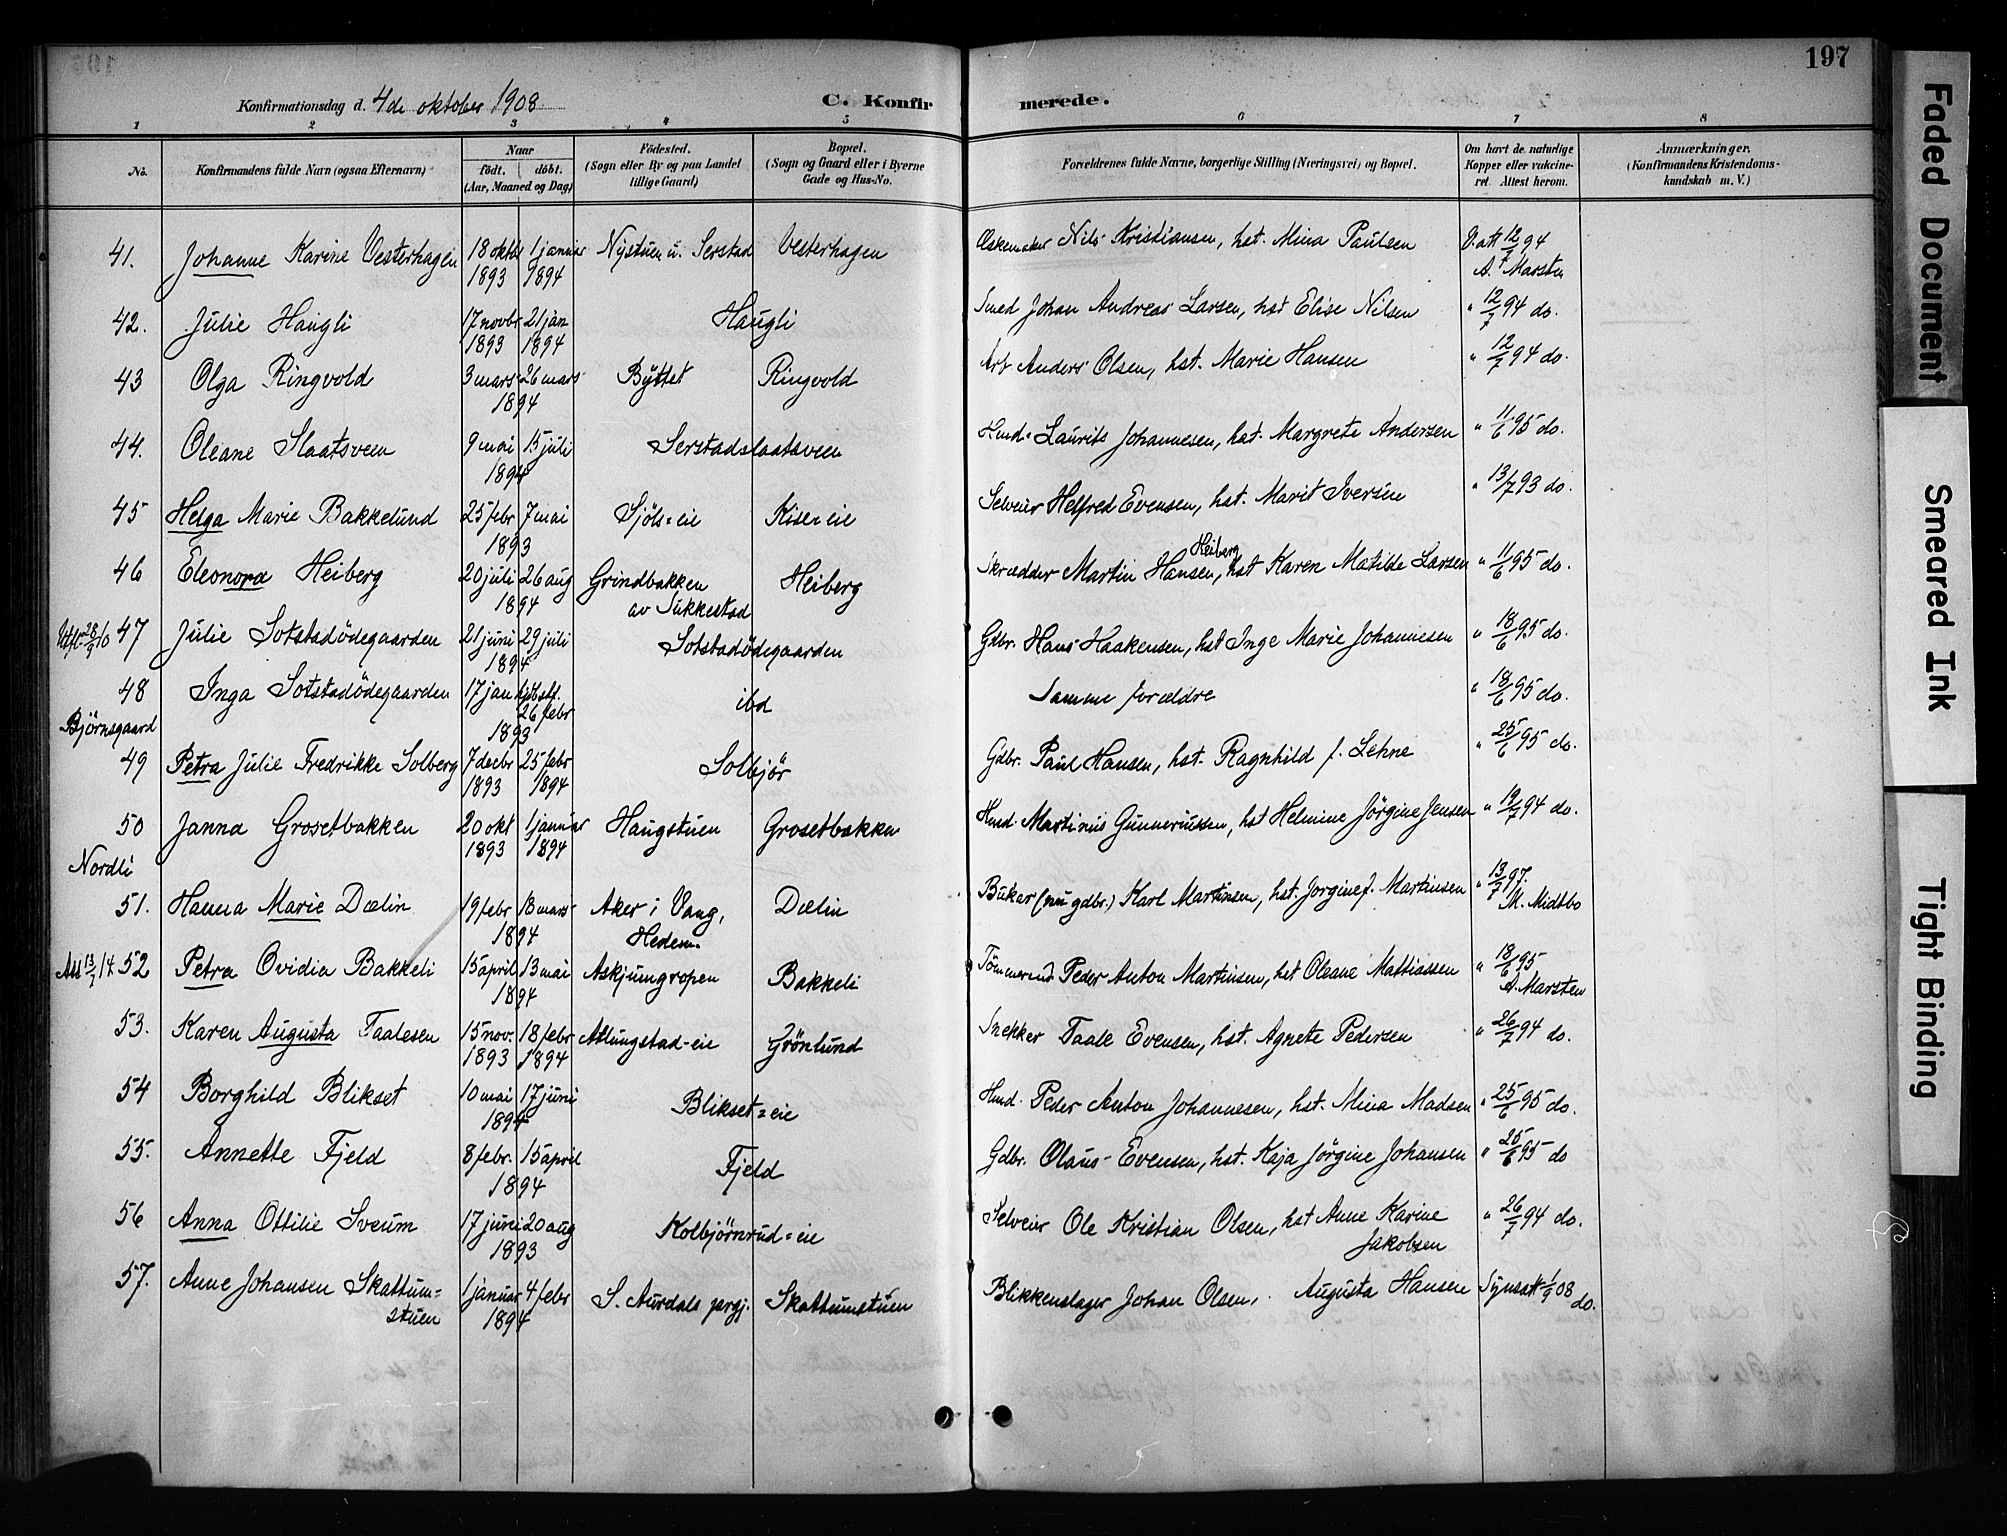 197
Konfirmationsdag d. 4de oktober 1908
C. Konfirmerede.
1 2 3 4 5 6 7 8
No. Konfirmandens fulde Navn (ogsaa Efternavn) Naar født. døbt. (Aar, Maaned og Dag) Födested. (Sogn eller By og paa Landet tillige Gaard) Bopæl. (Sogn og Gaard eller i Byerne Gade og Hus-No. Forældrenes fulde Navne, borgerlige Stilling (Næringsvei) og Bopæl. Om havt de naturlige Kopper eller vakcineret. Attest herom. Anmærkninger. (Konfirmandens Kristendomskundskab m. V.)
41. Johanne Karine Vesterhagen 18 oktbr 1893 1 januar 1894 Nystuen u. Serstad Vesterhagen Nils Kristiansen, hst. Mina Paulsen V. att 12/7 94 A. Marsten
42. Julie Haugli 17 novbr 1893 21 jan 1894 Haugli Smed Johan Andreas Larsen, hst Elise Nilsen " 12/7 94 do.
43 Olga Ringvold 3 mars 26 mars 1894 Byttet Ringvold Arb Anders Olsen, hst. Marie Hansen " 12/7 94 do.
44. Oleane Slaatsveen 9 mai 15 juli 1894 Serstadslaatsveen Hmd. Laurits Johannesen, hst. Margrete Andersen " 11/6 95 do.
45 Helga Marie Bakkelund 25 febr 7 mai 1893 Sjöls=eie Kise=eie Selveier Helfred Evensen, hst. Marit Iversen " 13/7 93 do.
46 Eleonora Heiberg 20 juli 26 aug 1894 Grindbakken av Sukkestad Heiberg Skrædder Martin Hansen Heiberg, hst Karen Matilde Larsen " 11/6 95 do.
Utfl. 28/9 10 47 Julie Sotstadödegaarden 21 juni 29 juli 1894 Sotstadödegaarden Gdbr. Hans Haakensen, hst Inge Marie Johannesen " 18/6 95 do.
48 Inga Sotstadödegaarden 17 jan hjdbstf. 26 febr 1893 ibd Samme forældre " 18/6 95 do.
Björnsgaard
49 Petra Julie Fredrikke Solberg 7 decbr 1893 25 febr 1894 Solbjör Gdbr. Paul Hansen, hst. Ragnhild f. Lehne " 25/6 95 do.
50 Janna Grosetbakken 20 okt 1893 1 januar 1894 Haugstuen Grosetbakken Hmd. Martinus Gunneriusen, hst Helmine Jörgine Jensen " 19/7 94 do.
Nordli
51. Hanna Marie Dælin 19 febr 18 mars 1894 Aker i Vang, Hedem. Dælin Bøkar (nu gdbr.) Karl Martinsen, hst. Jorgine f. Martinsen " 13/7 97. M. Midtbo
Att 13/7 14 52 Petra Ovidia Bakkeli 15 april 13 mai 1894 Askjumgropen Bakkeli Tömmermd Peder Anton Martinsen, hst Oleane Mattiassen " 18/6 95 A. Marsten
53. Karen Augusta Taalesen 15 nov. 1893 18 febr 1894 Atlungstad-eie Grönlund Snekker Taale Evensen, hst. Agnete Pedersen " 26/7 94 do.
54 Borghild Blikset 10 mai 17 juni 1894 Blikset=eie Hmd. Peder Anton Johannesen, hst. Mina Madsen " 25/6 95 do.
55. Annette Fjeld 8 febr. 15 april 1894 Fjeld Gdbr. Olaus Evensen, hst. Kaja Jörgine Johansen " 25/6 95 do
56 Anna Ottilie Sveum 17 juni 20 aug 1893 Kolbjörnrud=eie Selveier Ole Kristian Olsen, hst Anne Karine Jakobsen " 26/7 94 do.
57. Anne Johansen Skattum=stuen 1 januar 4 febr 1894 S. Aurdals prgj. Skattumstuen Blikkenslager Johan Olsen, Augusta Hansen Synsatt 1/9 08 do.
Faded Document
Smeared Ink
Tight Binding